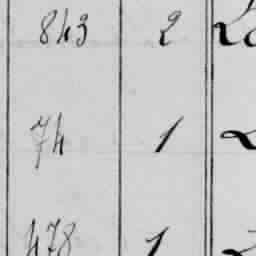 843 2
74 1
478 1